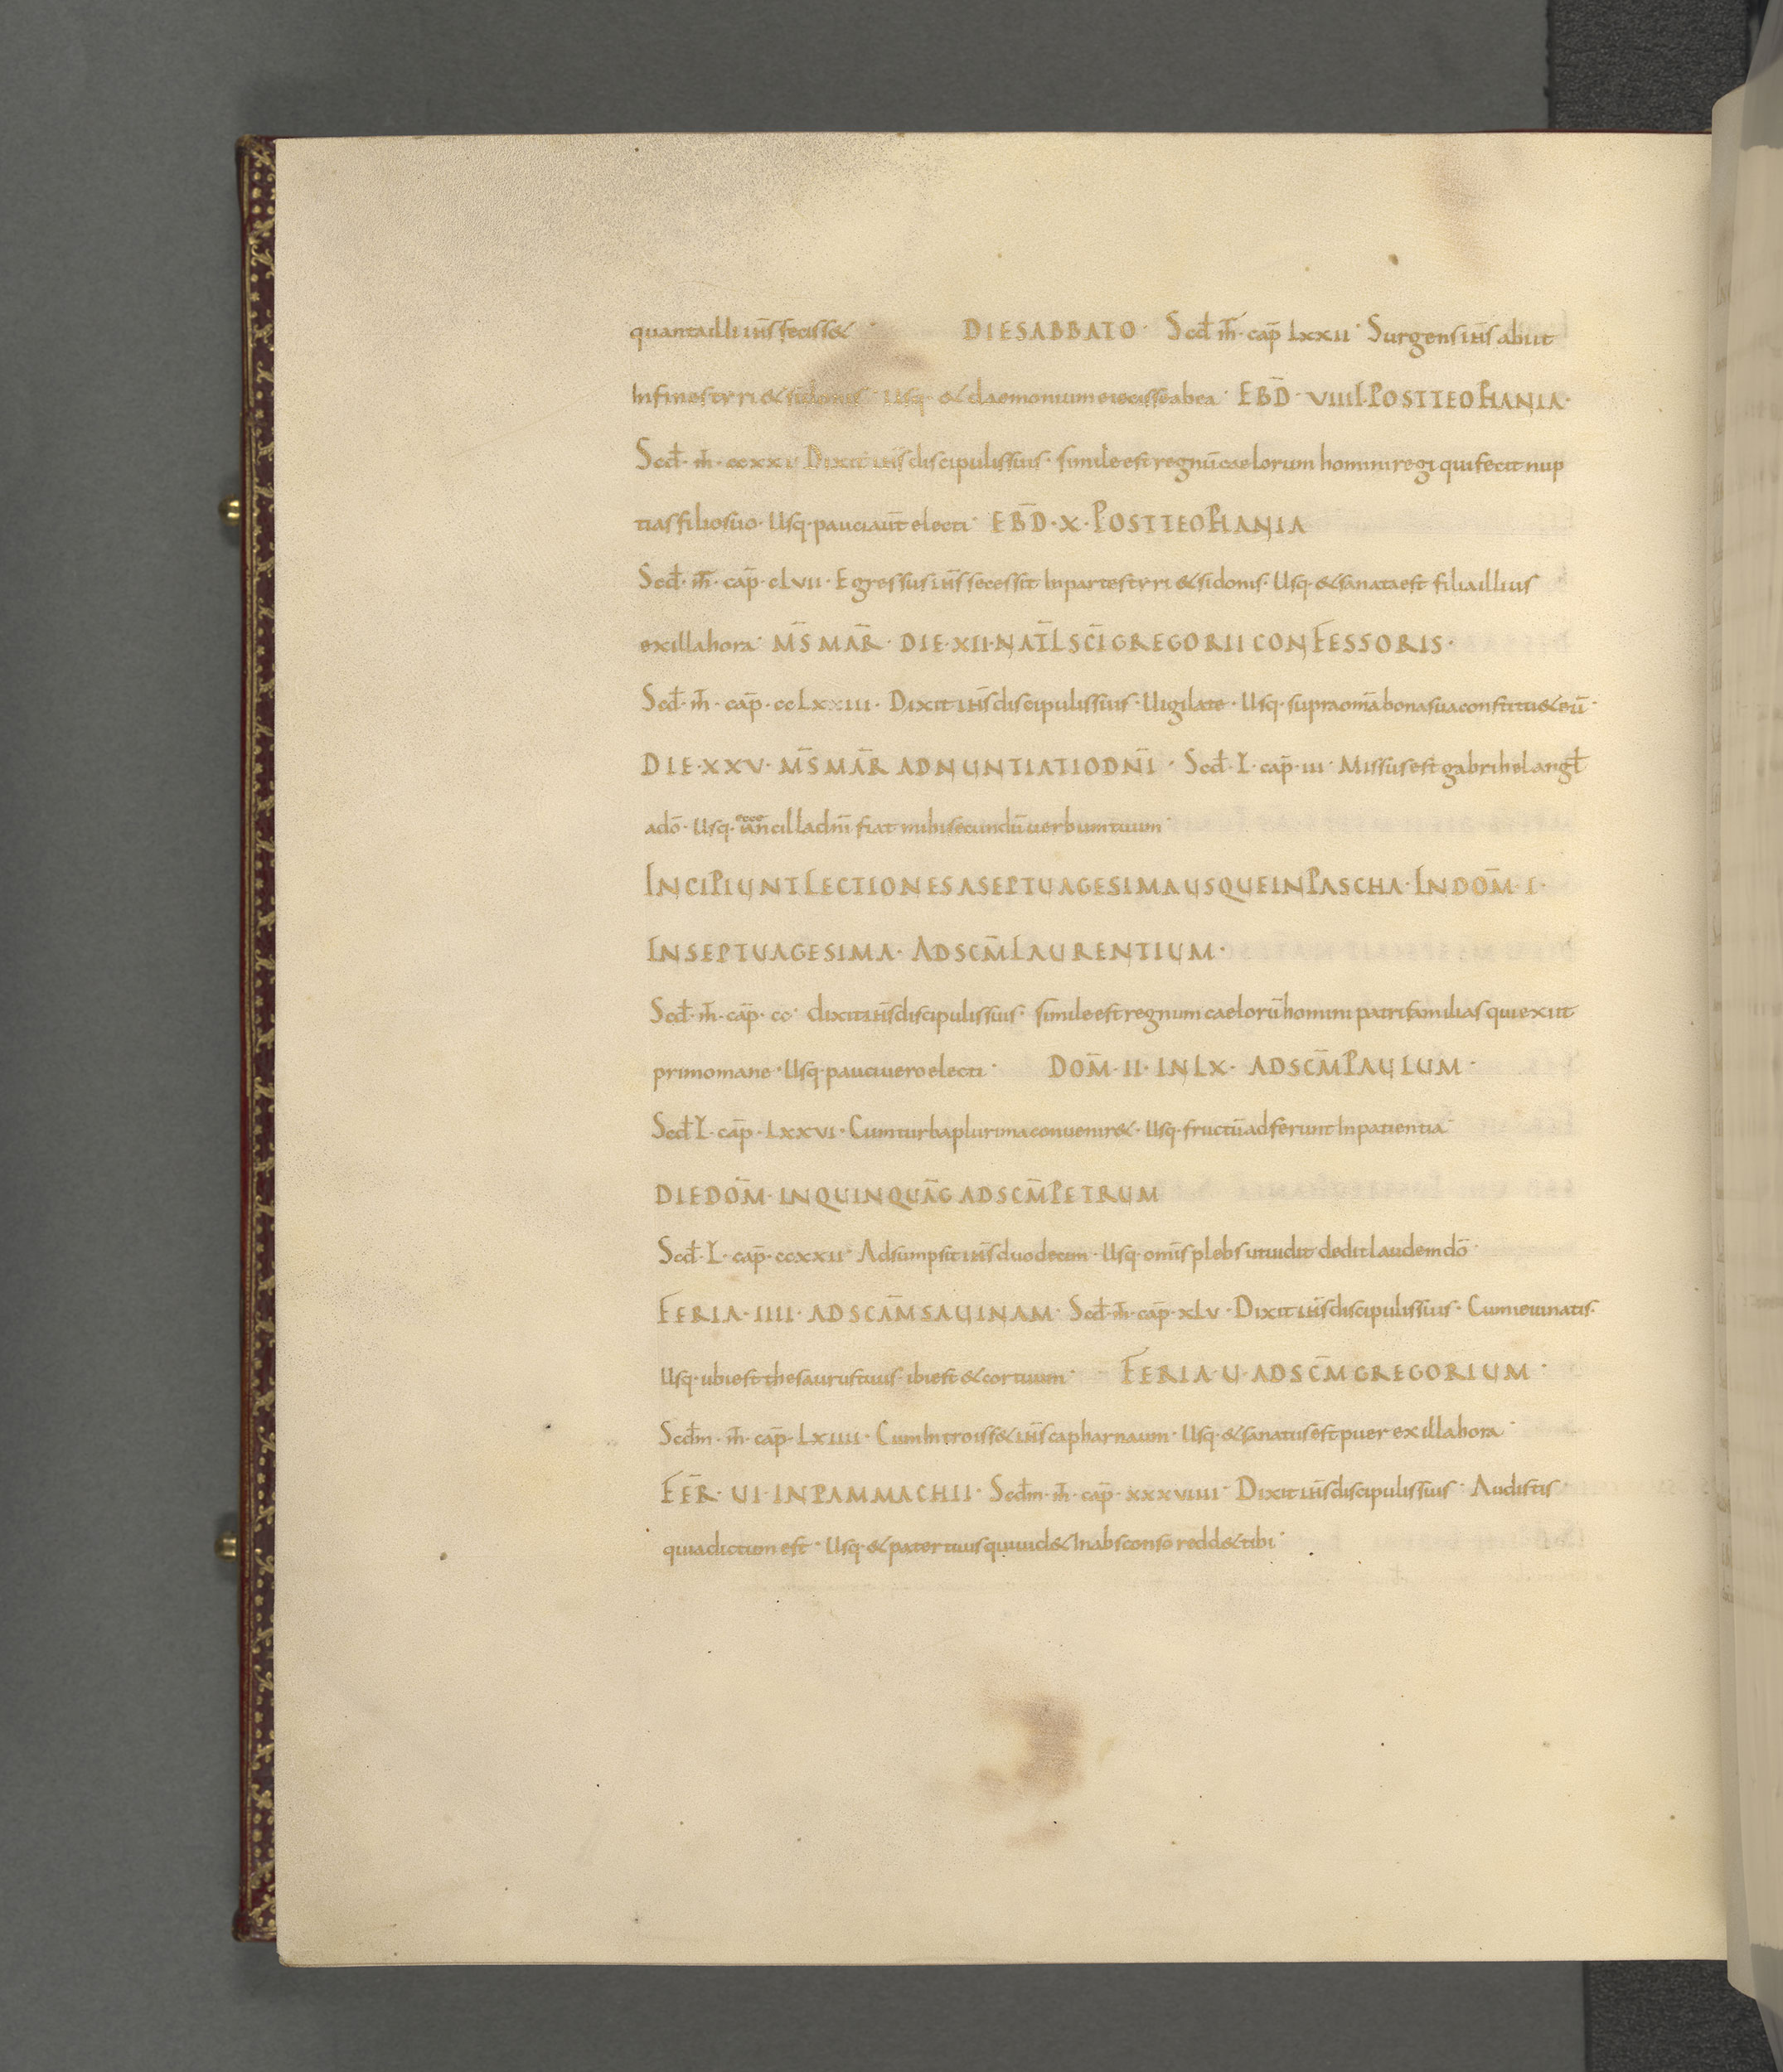 quanta illi ihs̄ fecisset · DIE SABBATO · Scd̄ · m̄ · cap̄ Lxxii · Surgens ihs̄ abiit
In fines tyri & sidonis · Usq · & daemonium eiecisse ab ea · EBD̄ · VIIII · POST TEOPHANIA ·
Scd̄ · m̄ · ccxxi · Dixit ihs̄ discipulis suis · simile est regnū caelorum homini regi qui fecit nup
tias filio suo · Usq · pauci aūt electi · EBD̄ · X · POST TEOPHANIA
Scd̄ · m̄ · cap̄ · cLvii · Egressus ihs̄ secessit In partes tyri & sidonis · Usq · & sanata est filia illius
ex illa hora · M̄S MAR̄ · DIE · XII · NAT̄L SC̄I GREGORII CONFESSORIS ·
Scd̄ · m̄ · cap̄ · ccLxxiii · Dixit ihs̄ discipulis suis · Uigilate · Usq · supra om̄a bona sua constitu& eū ·
DIE · XXV · M̄S MAR̄ ADNUNTIATIO DN̄I · Scd̄ · L · cap̄ · iii · Missus est gabrihel angł
a dō · Usq · ecce ancilla dn̄i fiat mihi secundū uerbum tuum ·
INCIPIUNT LECTIONES A SEPTUAGESIMA USQUE IN PASCHA · IN DOM̄ · I ·
IN SEPTUAGESIMA · AD SC̄M LAURENTIUM ·
Scd̄ · m̄ · cap̄ · cc · dixit ihs̄ discipulis suis · simile est regnum caelorū homini patri familias qui exiit
primo mane · Usq · pauci uero electi · DOM̄ · II · IN LX · AD SC̄M PAULUM ·
Scd̄ L · cap̄ · Lxxvi · Cum turba plurima conuenir& · Usq · fructū adferunt In patientia ·
DIE DOM̄ · IN QUINQUAḠ AD SC̄M PETRUM
Scd̄ · L · cap̄ · ccxxii · Adsumpsit ihs̄ duodecim · Usq · om̄is plebs ut uidit dedit laudem dō ·
FERIA · IIII · AD SCAM̄ SAUINAM · Scd̄ · m̄ · cap̄ · xLv · Dixit ihs̄ discipulis suis · Cum ieiunatis ·
Usq · ubi est thesaurus tuus · ibi est & cor tuum · FERIA · U · AD SC̄M GREGORIUM ·
Scd̄m · m̄ · cap̄ · Lxiiii · Cum Introiss& ihs̄ capharnaum · Usq · & sanatus est puer ex illa hora ·
FER̄ · UI · IN PAMMACHII · Scd̄m · m̄ · cap̄ · xxxviiii · Dixit ihs̄ discipulis suis · Audistis ·
quia dictum est · Usq · & pater tuus qui uid& In absconso redd& tibi ·